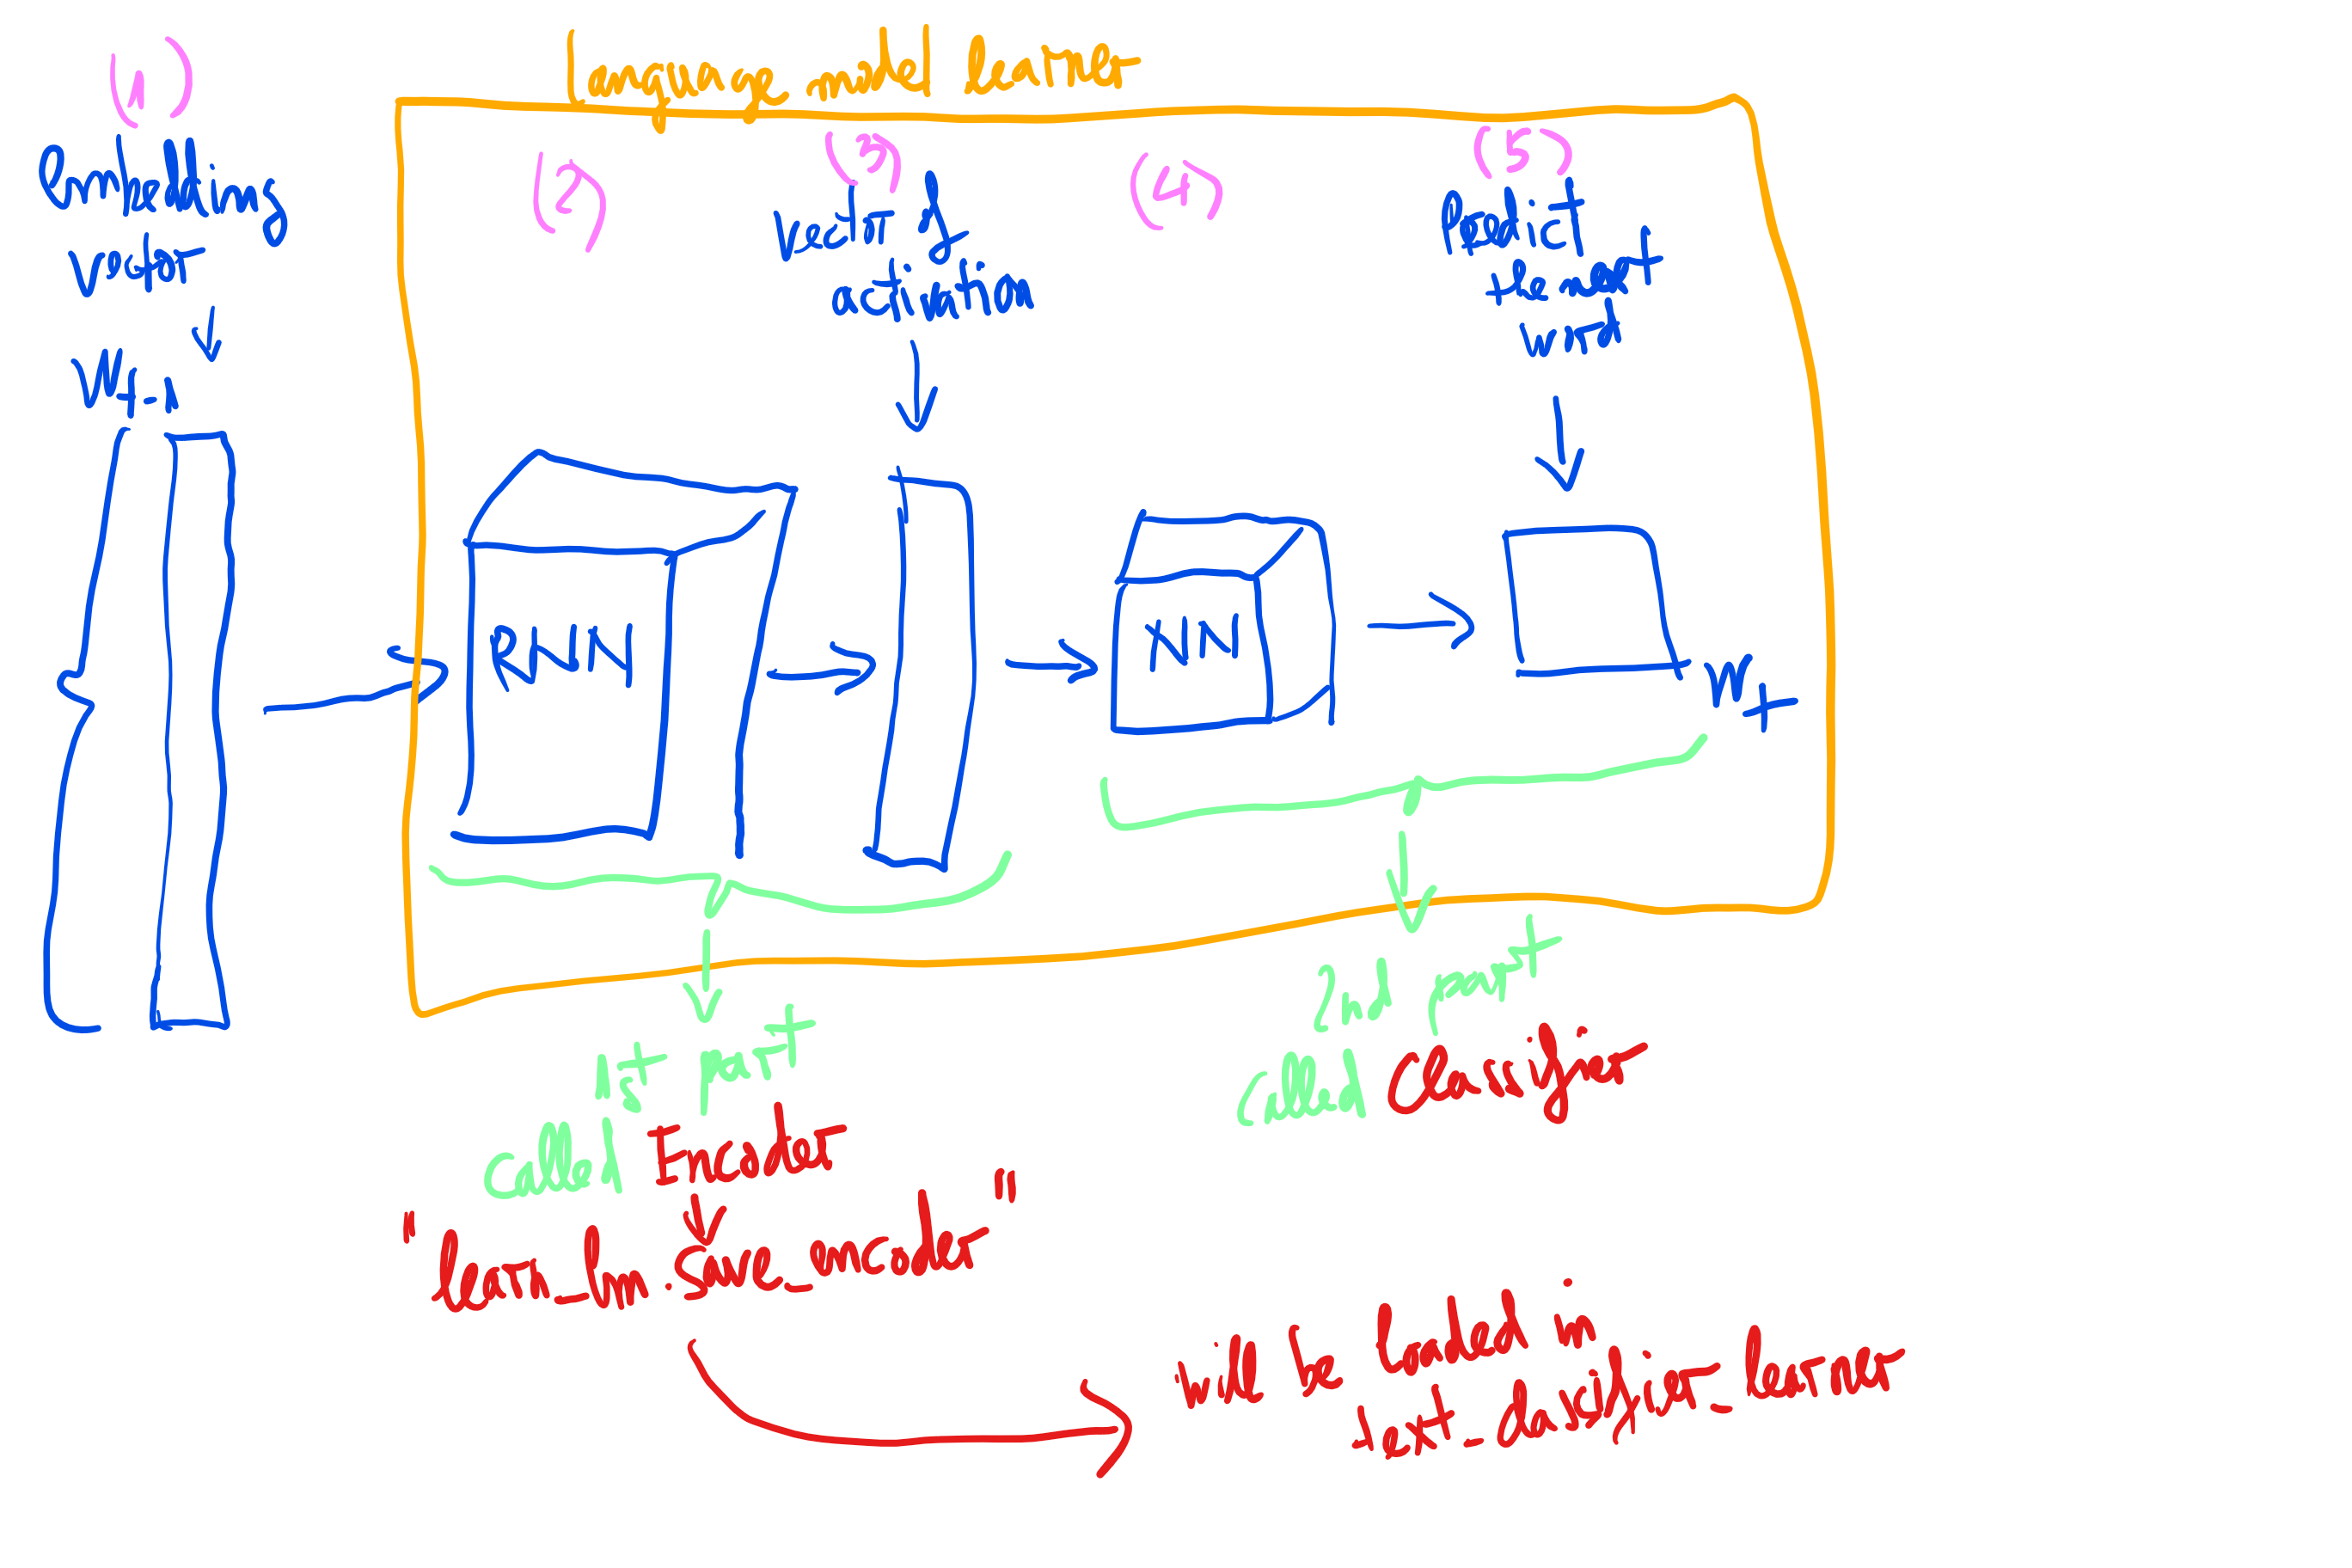 (1)
Embedding
vector
W_t-1
Language model learner
(2)
(3)
Vect of
activation
(4)
(5)
Predict
the next
word
RNN
NN
W_t
1st part
called Encoder
"learn_lm.save_encoder"
2nd part
called Classifier
will be loaded in
text_classifier_learner